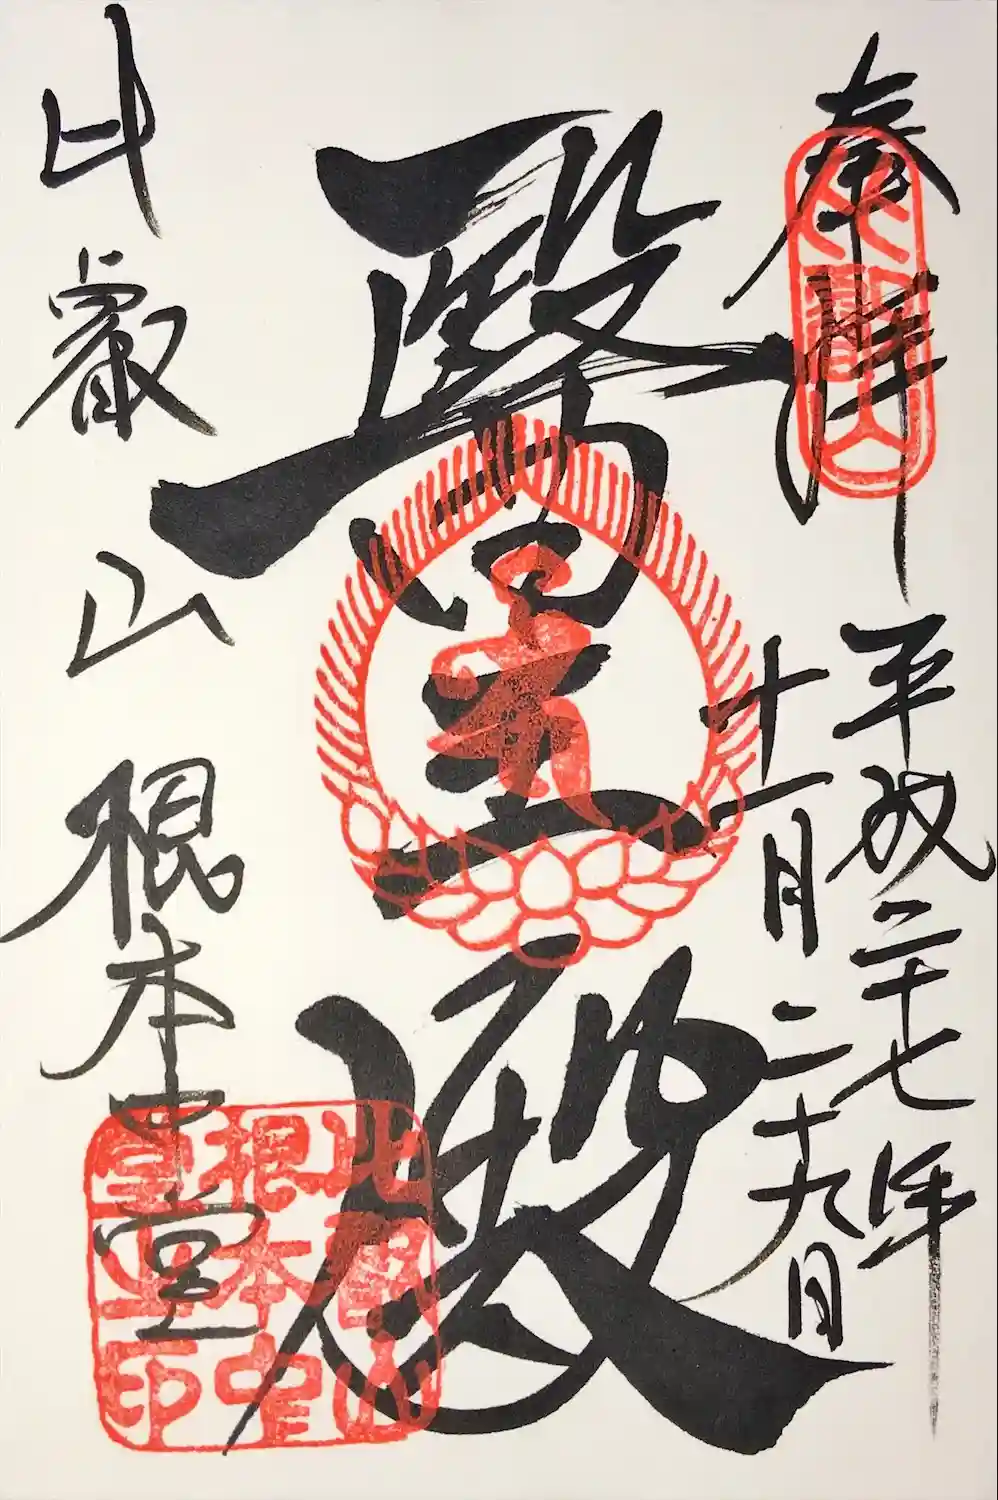 奉拝
比叡山
平成二十七年
十一月二十九日
醫王殿
比叡山 根本中堂
比叡山
根本中
堂之印